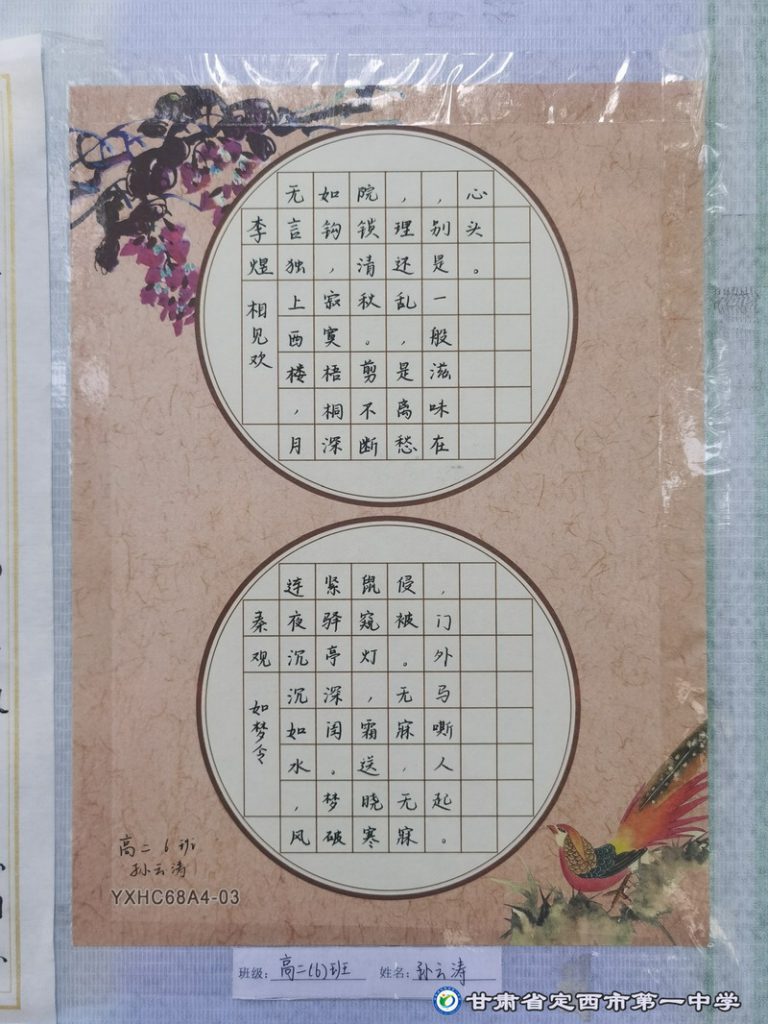 李煜
相见欢
无言独上西楼，月
如钩，寂寞梧桐深
院锁清秋。剪不断
，理还乱，是离愁
，别是一般滋味在
心头。
秦观
如梦令
连夜沉沉如水，风
紧驿亭深闭。梦破
鼠窥灯，霜送晓寒
侵被。无寐，无寐
，门外马嘶人起。
高二6班
孙云涛
YXHC68A4-03
班级：高二(6)班 姓名：孙云涛
甘肃省定西市第一中学